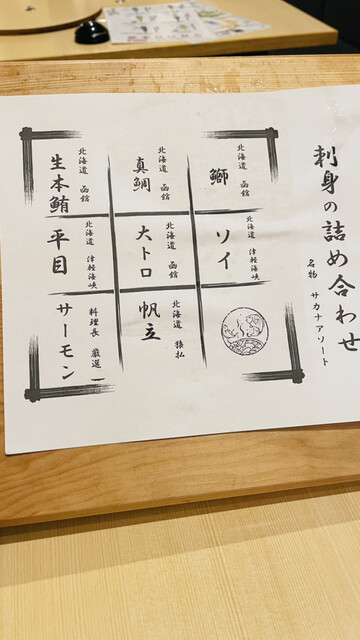 刺身の詰め合わせ
名物 サカナアソート
北海道 函館
鰤
北海道 函館
真鯛
北海道 函館
生本鮪
北海道 津軽海峡
ソイ
北海道 函館
大トロ
北海道 津軽海峡
平目
北海道 猿払
帆立
料理長 厳選
サーモン